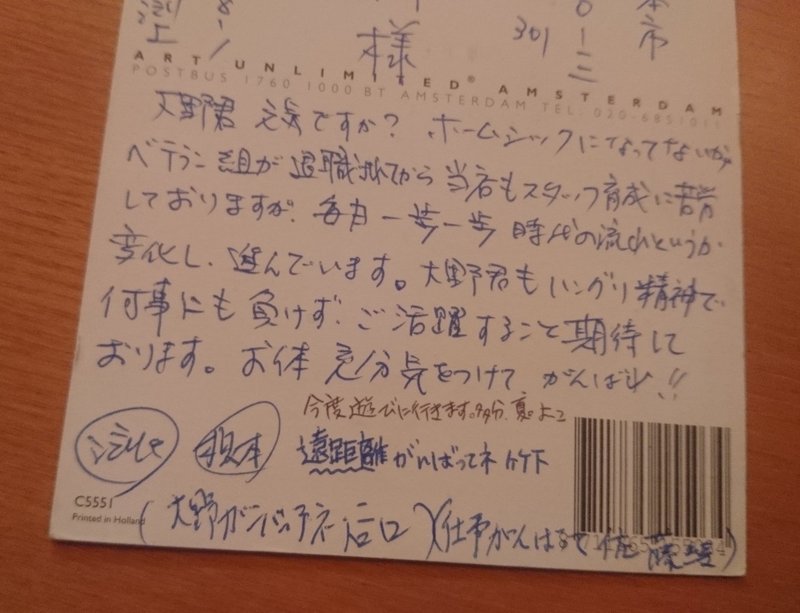 本市
〇一三
301
8-1
様
ART UNLIMITED® AMSTERDAM
POSTBUS 1760 1000 BT AMSTERDAM TEL: 020-6851015
大野君 元気ですか? ホームシックになってないか?
ベテラン組が退職されてから当店もスタッフ育成に苦労
しておりますが、毎月一歩一歩時代の流れというか
変化し、進んでいます。大野君もハングリ精神で
何事にも負けず、ご活躍すること期待して
おります。お体充分気をつけてがんばれ!!
今度遊びに行きます。多分、夏。よこ
根本
遠距離がんばってネ 竹下
C5551
Printed in Holland
(大野ガンバッテネ 后口)(仕事がんばるで 佐藤